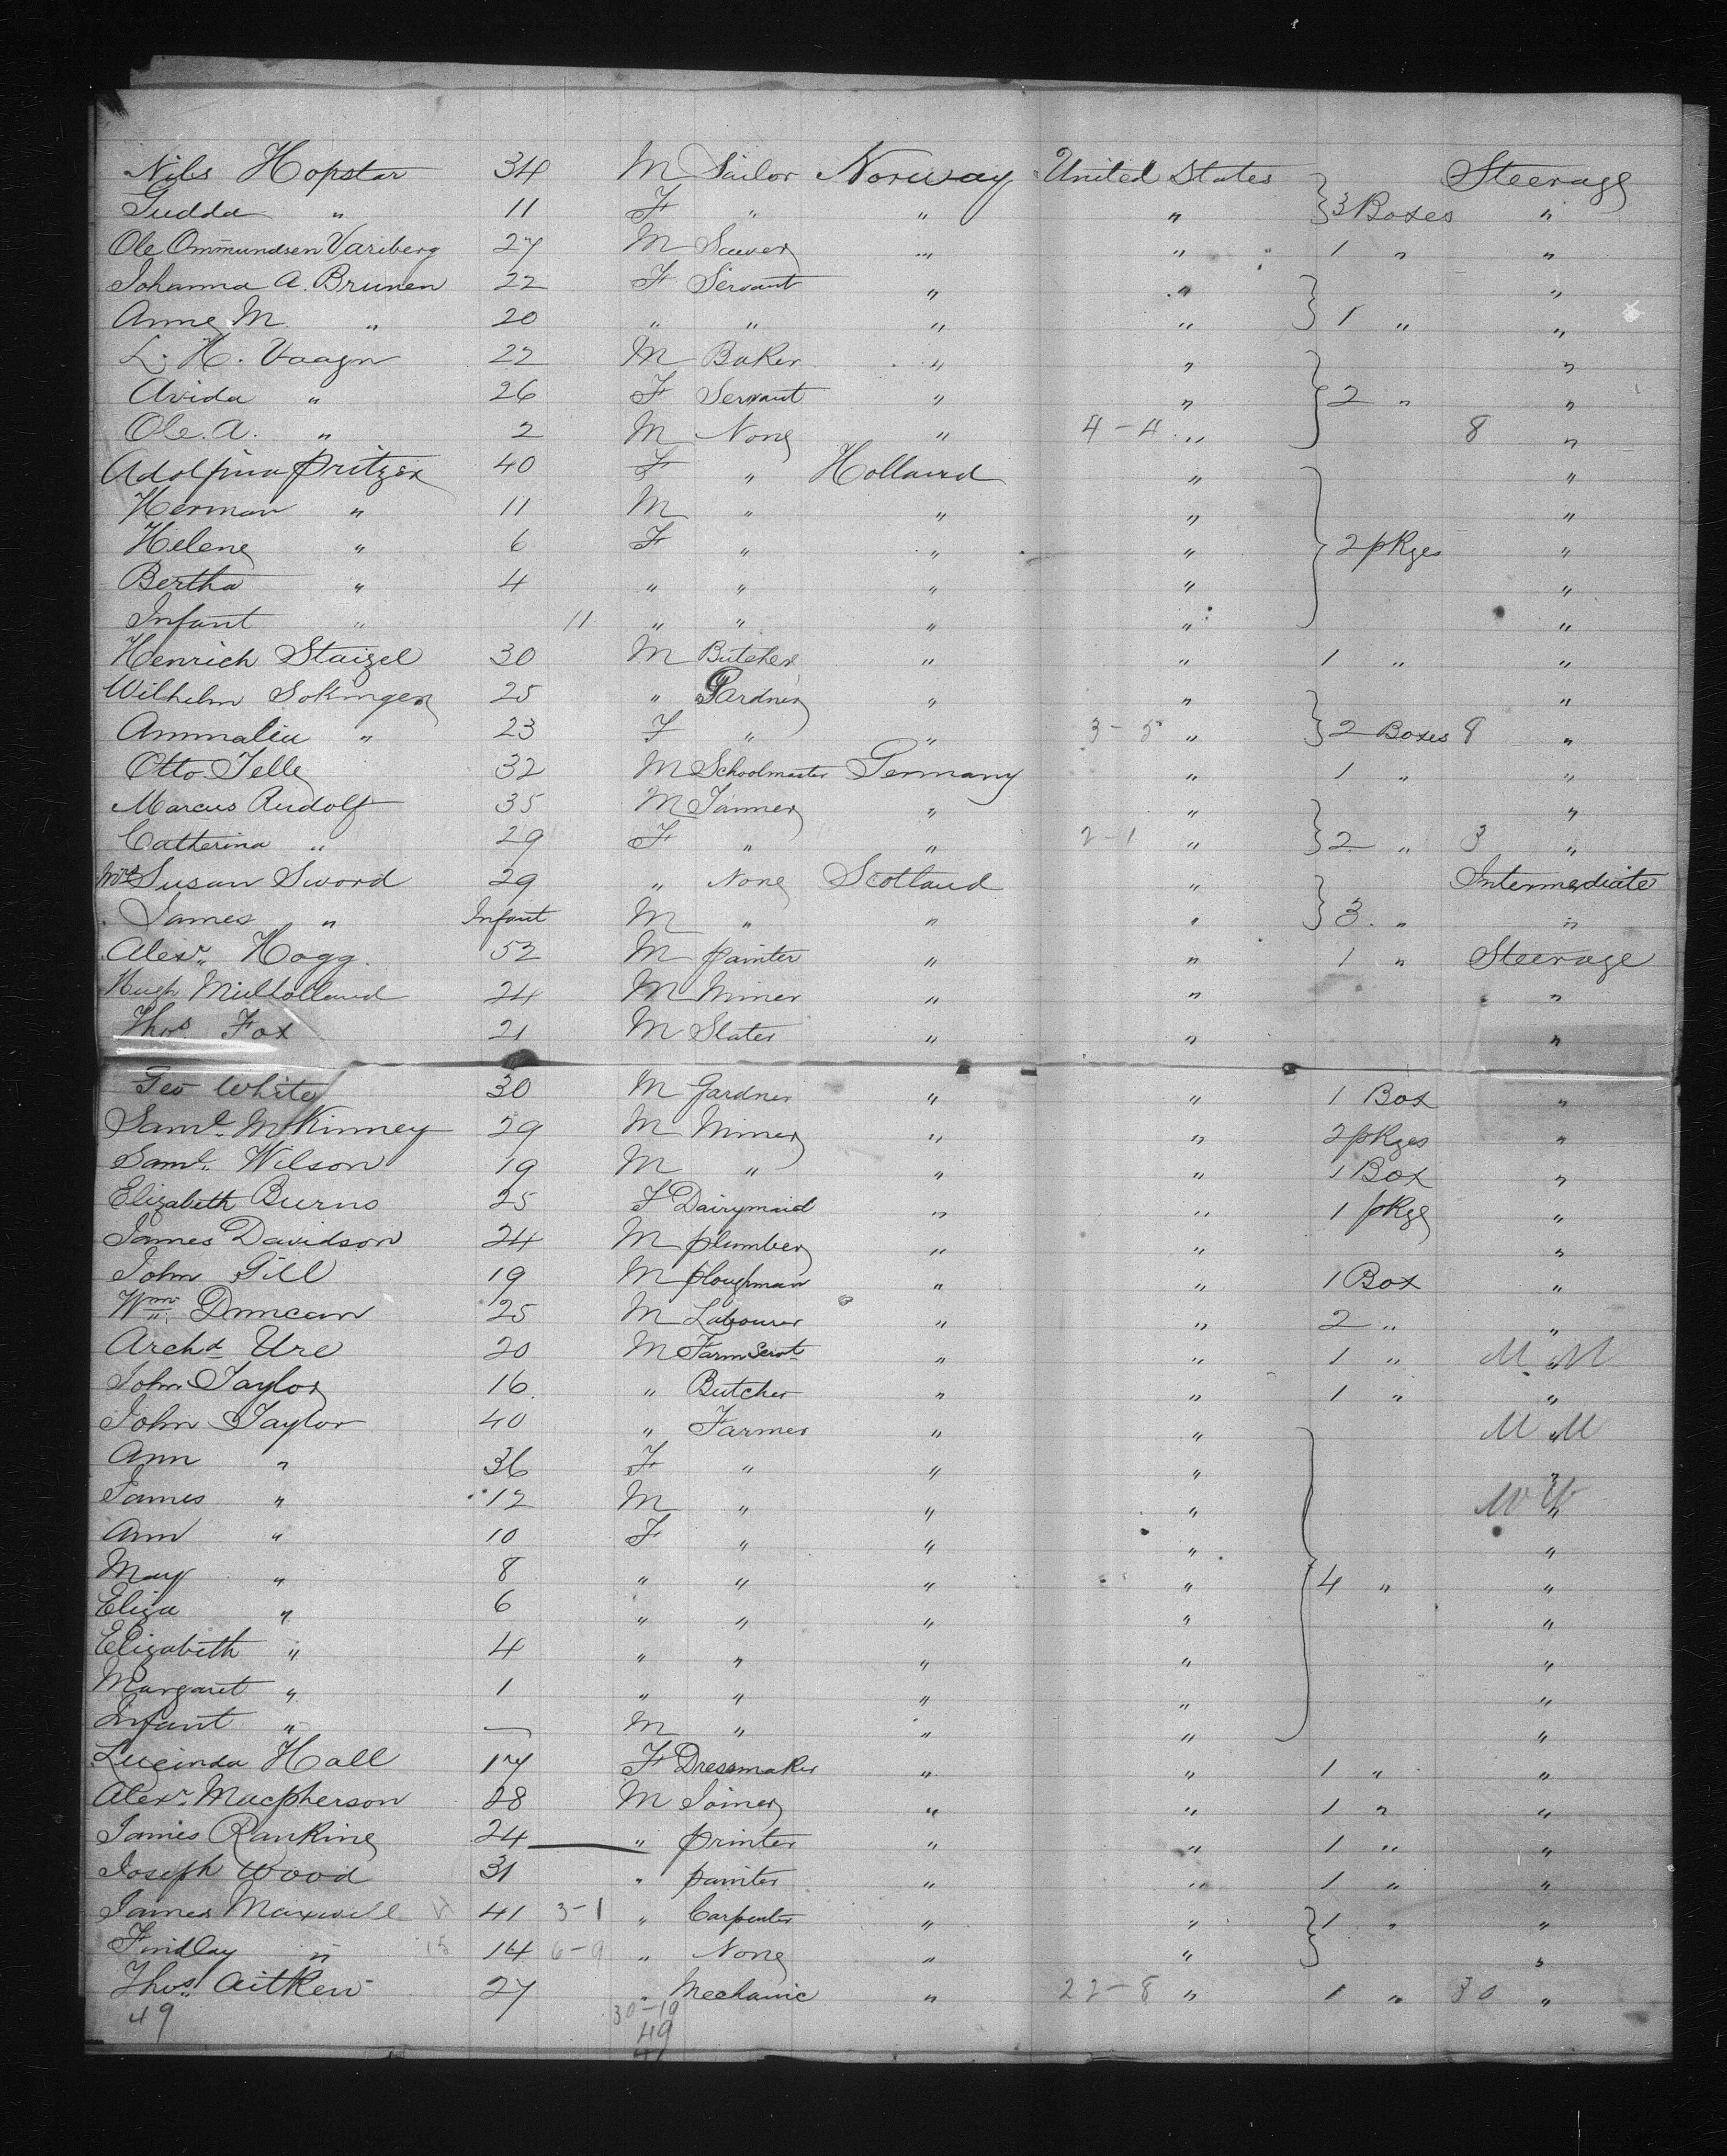 Nils Hopstar 34 M Sailor Norway United States Steerage
Gudda " 11 F " " " } 3 Boxes "
Ole Ommundsen Variberg 27 M Sawer " " 1 " "
Johanna A. Brunen 22 F Servant " " "
Anne M. " 20 " " " " } 1 " "
L. H. Vaagn 22 M Baker " " "
Avida " 26 F Servant " " } 2 " "
Ole. A. " 2 M None " 4-4 " 8 "
Adolfina Pritzer 40 F " Holland " "
Herman " 11 M " " " "
Helene " 6 F " " " } 2 pkges "
Bertha " 4 " " " " "
Infant " 11 " " " " "
Henrich Staizel 30 M Butcher " " 1 " "
Wilhelm Sokinger 25 " Gardner " " "
Ammalia " 23 F " " 3-5 " } 2 Boxes 8 "
Otto Telle 32 M Schoolmaster Germany " 1 " "
Marcus Rudolf 35 M Tanner " " "
Catherina " 29 F " " 2-1 " } 2 " 3 "
Mrs Susan Sword 29 " None Scotland " Intermediate
James " Infant M " " " } 3 " "
Alexr. Hogg. 52 M painter " " 1 " Steerage
Hugh Mullolland 24 M Miner " " "
Thos. Fox 21 M Slater " " "
Geo White 30 M Gardner " " 1 Box "
Saml. McKinney 29 M Miner " " 2 pkges "
Saml. Wilson 19 M " " " 1 Box "
Elizabeth Burns 25 F Dairymaid " " 1 pkge "
James Davidson 24 M plumber " " "
John Gill 19 M ploughman " " 1 Box "
Wm. Duncan 25 M Labourer " " 2 " "
Archd Ure 20 M Farm Servt " " 1 " M " M
John Taylor 16. " Butcher " " 1 " "
John Taylor 40 " Farmer " " M " M
Ann " 36 F " " " "
James " 12 M " " " "
Ann " 10 F " " " "
May " 8 " " " " } 4 " "
Eliza " 6 " " " " "
Elizabeth " 4 " " " " "
Margaret " 1 " " " " "
Infant " — M " " " "
Lucinda Hall 17 F Dressmaker " " 1 " "
Alexr. Macpherson 28 M Joiner " " 1 " "
James Rankine 24 " printer " " 1 " "
Joseph Wood 31 " painter " " 1 " "
James Maxwell 41 3-1 " Carpenter " " } 1 " "
Findlay " 15 14 6-9 " None " " "
Thos. Aitken 27 " Mechanic " 22-8 " 1 " 30 "
49 30-19
49